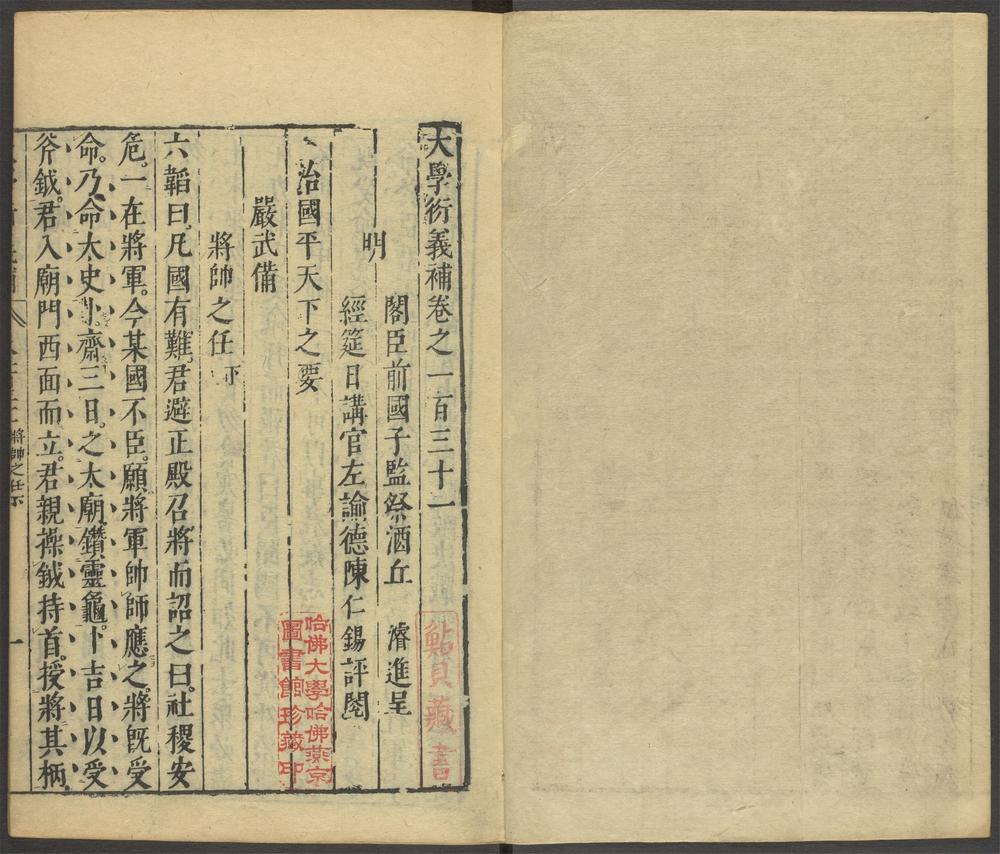 大學衍義補卷之一百三十二
閣臣前國子監祭酒丘濬進呈
明
經筵日講官左諭德陳仁錫評閱
治國平天下之要
嚴武備
將帥之任下
六韜曰。凡國有難。君避正殿召將而詔之曰。社稷安
危。一在將軍。今某國不臣。願將軍帥師應之。將旣受
命。乃命太史卜。齋三日。之太廟。鑽靈龜。卜吉日以受
斧鉞。君入廟門西面而立。君親操鉞持首。授將其柄。
將帥之任下
一
鮎貝藏書
哈佛大學哈佛燕京
圖書館珍藏印